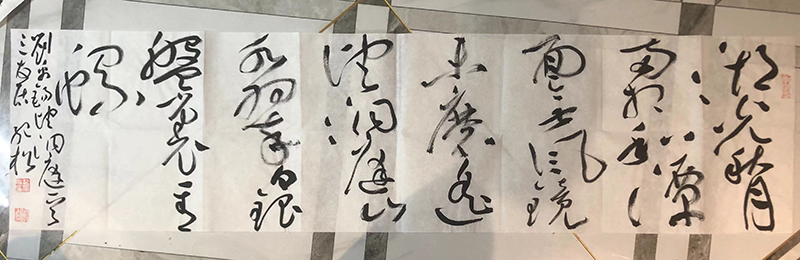 湖光秋月
两相和潭
面无风镜
未磨遥
望洞庭山
水翠白银
盘里一青
螺
刘禹锡望洞庭
三友居